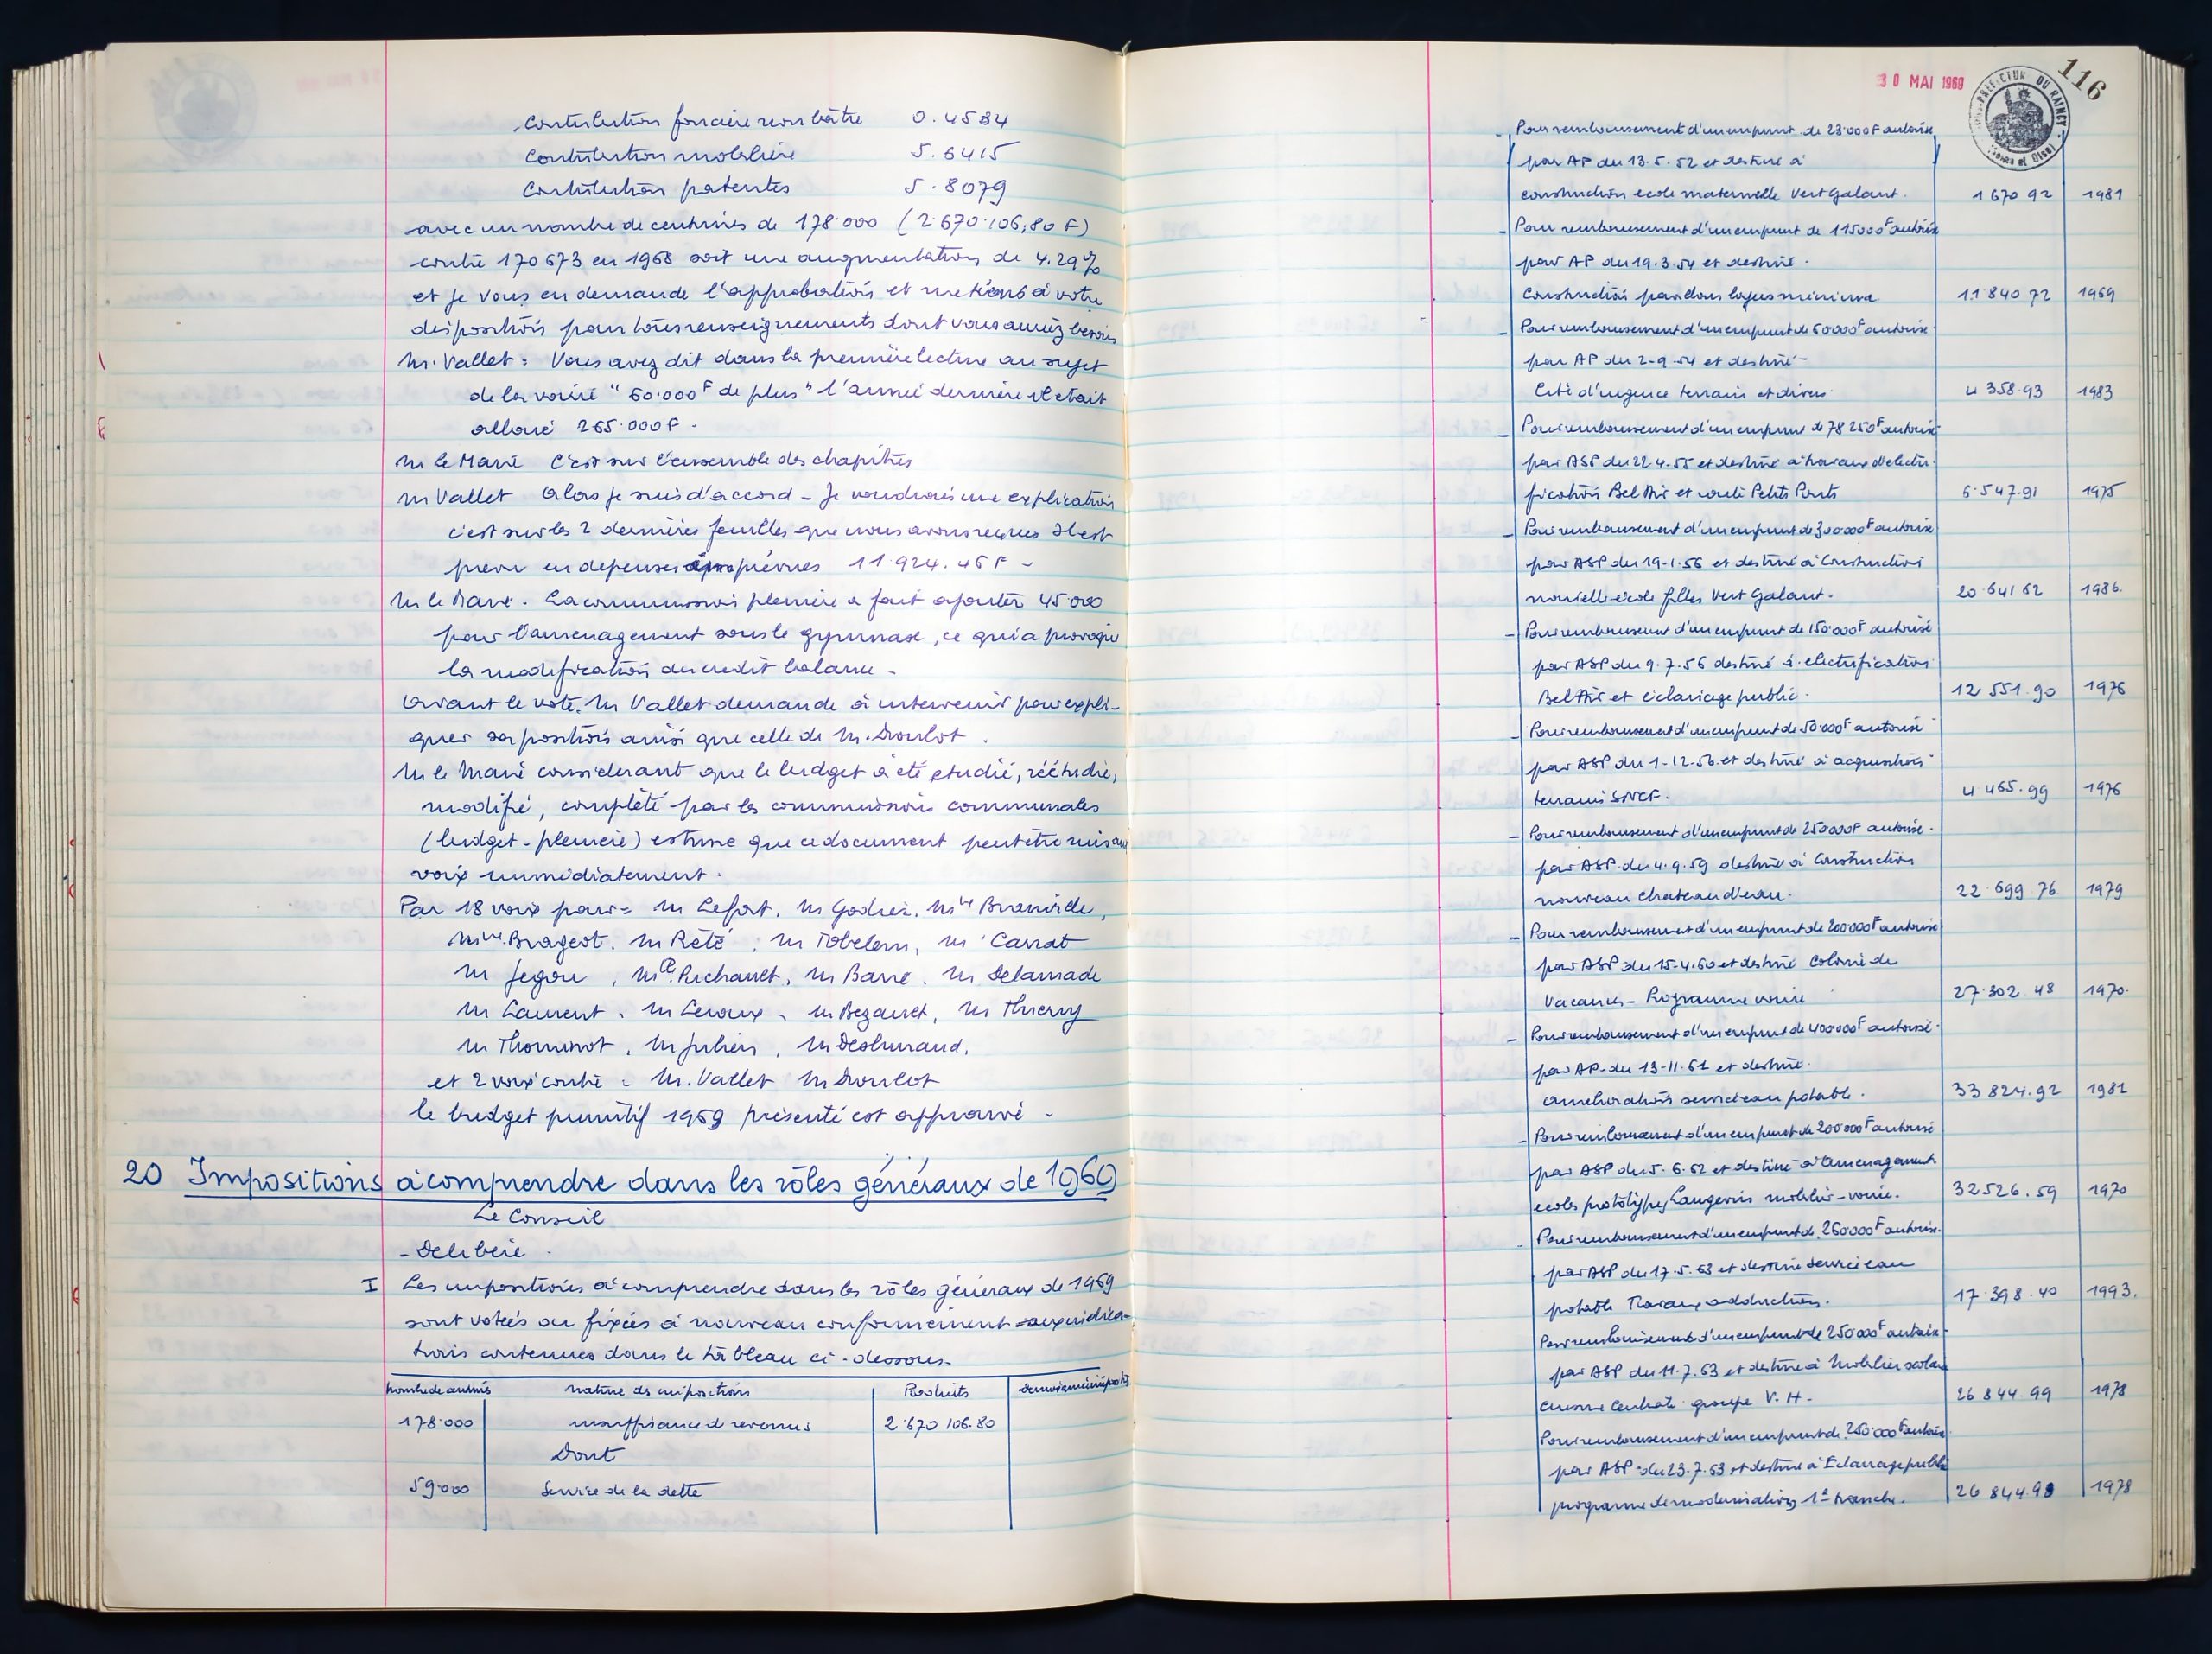 Contribution foncière non bâtie 0.4584
Contribution mobilière 5.6415
Contribution patentes 5.8079
avec un nombre de centimes de 178.000 (2.670.106,80 F)
contre 170 673 en 1968 soit une augmentation de 4.29%
et je vous en demande l'approbation et me tiens à votre
disposition pour tous renseignements dont vous auriez besoin
M. Vallet : Vous avez dit dans la première lecture au sujet
de la voirie "60.000F de plus" l'année dernière il était
alloué 265.000F.
M le Maire C'est sur l'ensemble des chapitres
M Vallet Alors je suis d'accord - Je voudrais une explication
c'est sur les 2 dernières feuilles que nous avons reçues Il est
prevu en depenses imprévues 11.924.46 F -
M le Maire. La commission pleniere a fait ajouter 45.000
pour l'amenagement sous le gymnase, ce qui a provoqué
la modification du credit balance.
Avant le vote, M Vallet demande à intervenir pour expli-
quer sa position ainsi que celle de M. Droulot.
M le Maire considerant que le budget a été etudié, réétudié,
modifié, complété par les commissions communales
(budget - pleniere) estime que ce document peut être mis aux
voix immédiatement.
Par 18 voix pour = M Lefort, M Godrez,
Mme Brageot, M Rété, M Tobelem, M Carrat
M Jegou, M Barre, M Delamade
M Laurent, M Leroux, M Bezault, M Thierry
M Thominot, M Julien,
et 2 voix contre = M. Vallet M Droulot
le budget primitif 1969 présenté est approuvé -
20 Impositions à comprendre dans les rôles généraux de 1969
Le Conseil
- Delibère.
I Les impositions à comprendre dans les rôles généraux de 1969
sont votées ou fixées à nouveau conformément aux indica-
tions contenues dans le tableau ci-dessous.
Nombre de centimes nature des impositions Produits
178.000 insuffisance de revenus 2.670 106.80
Dont
59.000 Service de la dette
30 MAI 1969
SOUS-PRÉFECTURE DU RAINCY
(Seine et Oise)
116
- Pour remboursement d'un emprunt de 23.000F autorisé
par AP du 13.5.52 et destiné à
construction ecole maternelle Vert Galant. 1 670 92 1981
- Pour remboursement d'un emprunt de 115000F autorisé
par AP du 19.3.54 et destiné.
Construction pavillons logis minima 11 840 72 1969
- Pour remboursement d'un emprunt de 60000F autorisé
par AP du 2-9.54 et destiné -
Cité d'urgence terrain et divers. 4 358.93 1983
- Pour remboursement d'un emprunt de 78 250F autorisé
par ASP du 22.4.55 et destiné à travaux d'electri-
fication Bel Air et route Petits Ponts 6.547.91 1975
- Pour remboursement d'un emprunt de 300000F autorisé
par ASP du 19-1.56 et destiné à Construction
nouvelle ecole filles Vert Galant. 20.641 62 1986.
- Pour remboursement d'un emprunt de 150.000F autorisé
par ASP du 9.7.56 destiné à electrification
Bel Air et eclairage public. 12 551.90 1976
- Pour remboursement d'un emprunt de 50.000F autorisé
par ASP du 1-12.56 et destiné à acquisition
terrains SNCF. 4 465.99 1976
- Pour remboursement d'un emprunt de 250000F autorisé.
par ASP du 4.9.59 destiné à Construction
nouveau chateau d'eau. 22.699.76 1979
- Pour remboursement d'un emprunt de 200000F autorisé
par ASP du 15-4.60 et destiné Colonie de
Vacances - Programme voirie 27.302.48 1970.
- Pour remboursement d'un emprunt de 400000F autorisé.
par AP. du 13-11.61 et destiné.
amélioration service eau potable. 33 824.92 1981
- Pour remboursement d'un emprunt de 200000F autorisé
par ASP du 5.6.62 et destiné à l'Amenagement
ecoles prototypes Langevin mobilier - voirie. 32.526.59 1970
- Pour remboursement d'un emprunt de 260000F autorisé.
par ASP du 17.5.63 et destiné Service eau
potable Travaux adduction. 17.398.40 1993.
Pour remboursement d'un emprunt de 250000F autorisé.
par ASP du 11.7.63 et destiné à Mobilier scolaire
cuisine centrale groupe V. H. 26 844.99 1978
Pour remboursement d'un emprunt de 250.000F autorisé
par ASP du 23.7.63 et destiné à Eclairage public
programme de modernisation 1è tranche. 26 844 98 1978